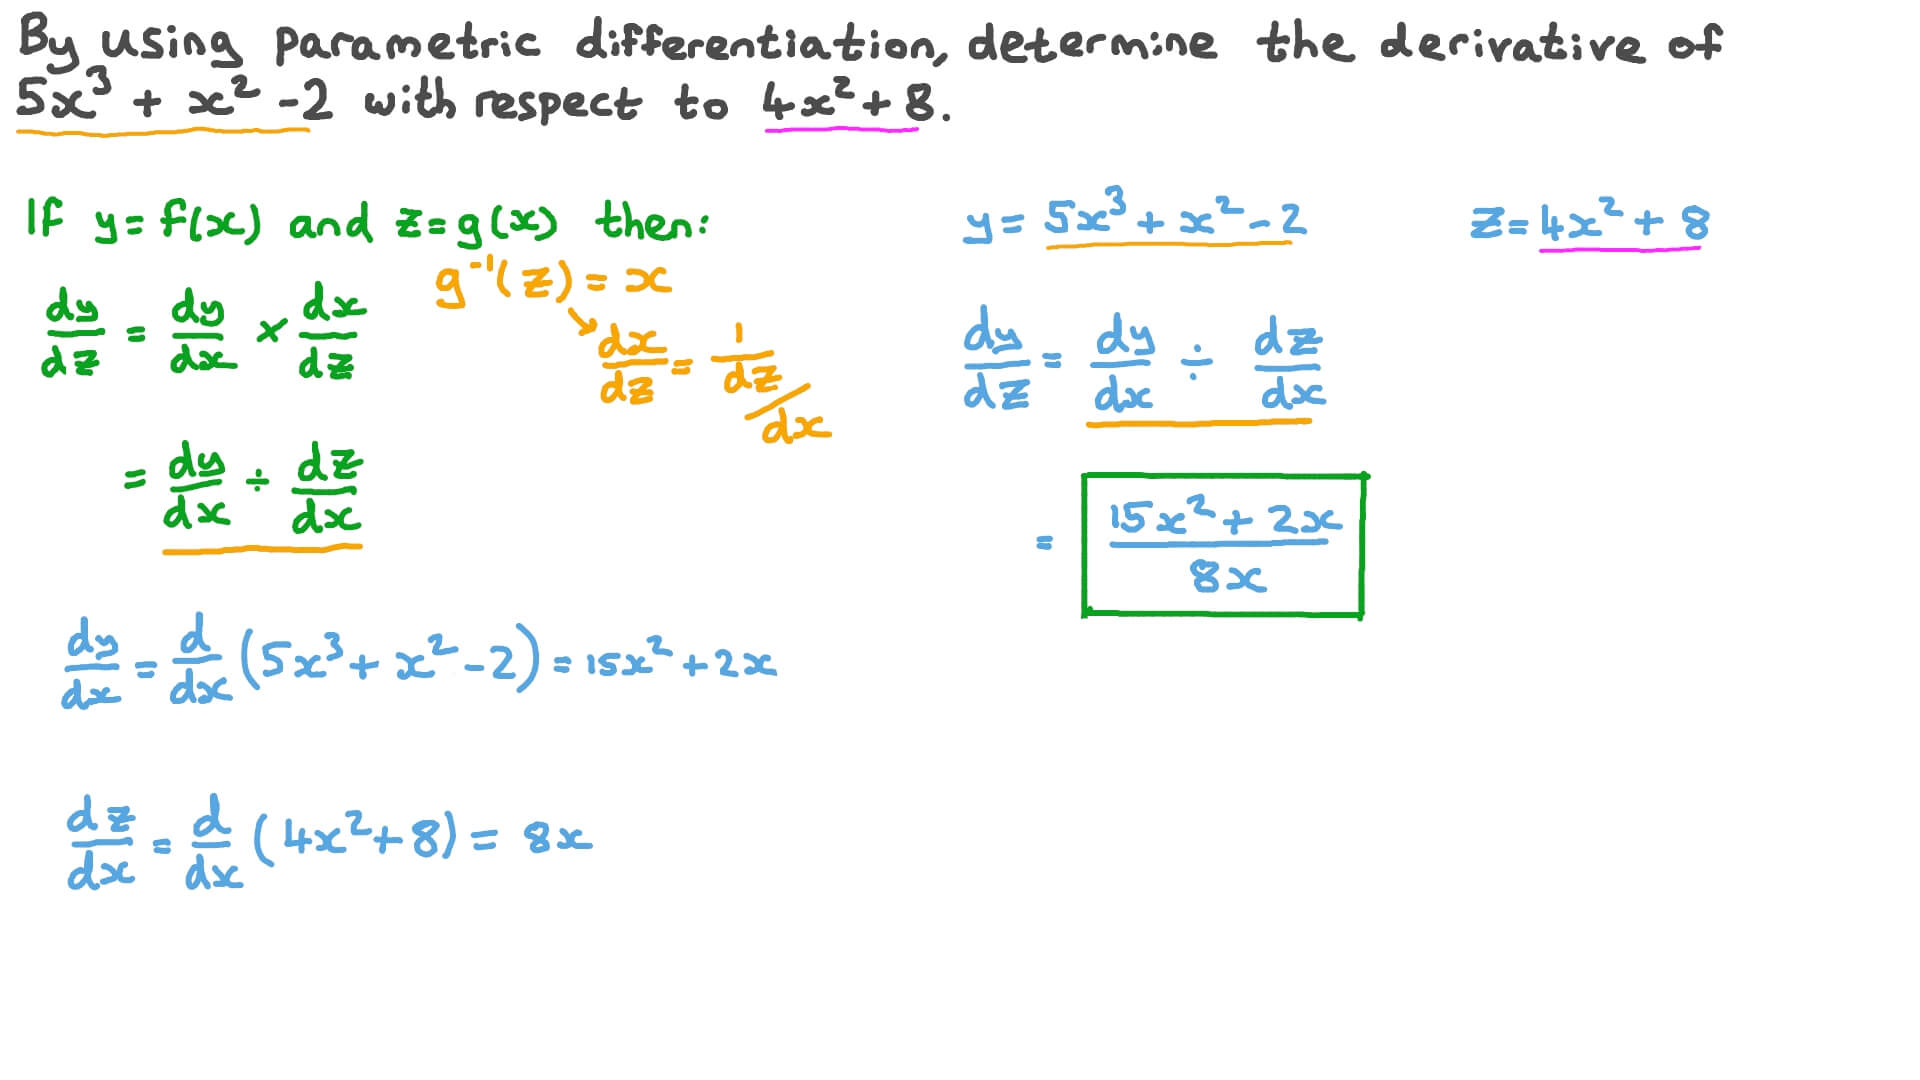 By using parametric differentiation, determine the derivative of
5x³ + x² - 2 with respect to 4x² + 8.
If y = f(x) and z = g(x) then:
g⁻¹(z) = x
dy/dz = dy/dx × dx/dz
dx/dz = 1/(dz/dx)
= dy/dx ÷ dz/dx
dy/dx = d/dx (5x³ + x² - 2) = 15x² + 2x
dz/dx = d/dx (4x² + 8) = 8x
y = 5x³ + x² - 2
z = 4x² + 8
dy/dz = dy/dx ÷ dz/dx
= (15x² + 2x)/8x